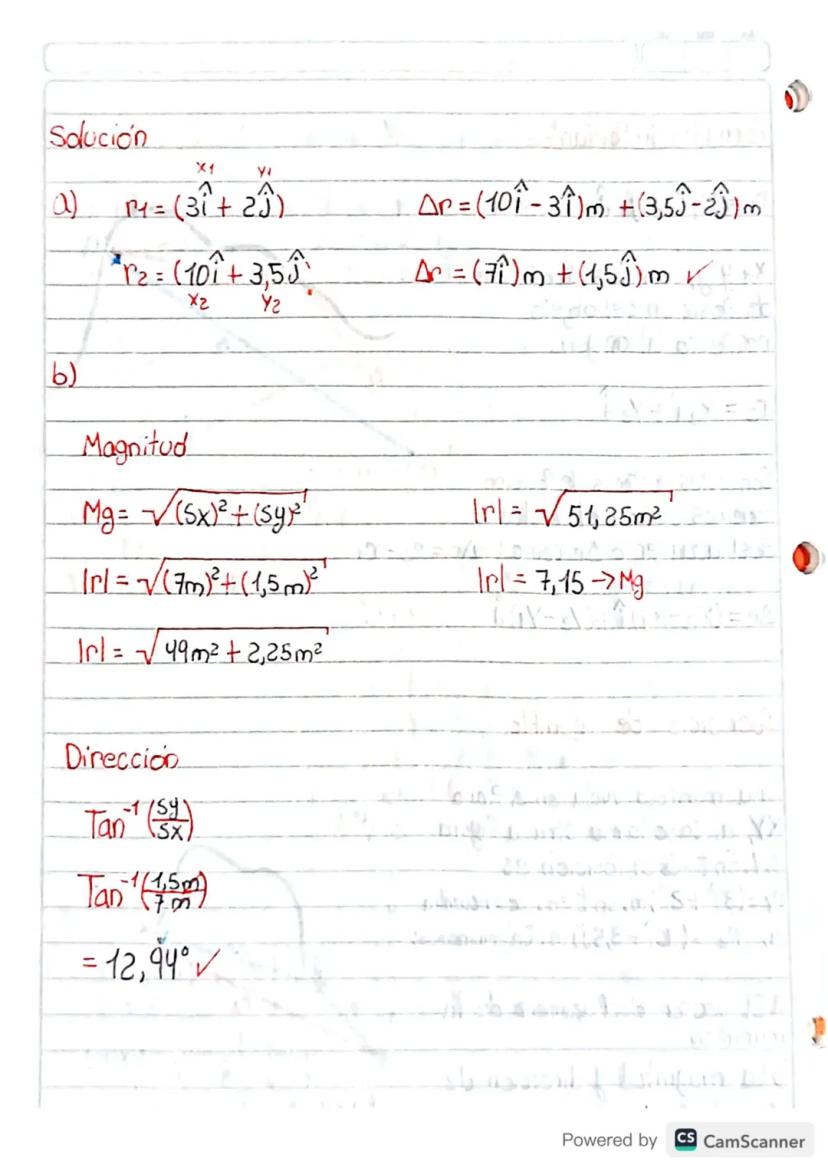 Solución
x1 y1
a) r1 = (3î + 2ĵ)
r2 = (10î + 3,5ĵ
x2 y2
Δr = (10î - 3î)m + (3,5ĵ - 2ĵ)m
Δr = (7î)m + (1,5ĵ)m ✓
b)
Magnitud
Mg = √(Sx)² + (Sy)²
|r| = √(7m)² + (1,5m)²
|r| = √49m² + 2,25m²
|r| = √51,25m²
|r| = 7,15 → Mg
Dirección
Tan⁻¹ (Sy/Sx)
Tan⁻¹ (1,5m/7m)
= 12,94° ✓
Powered by CS CamScanner